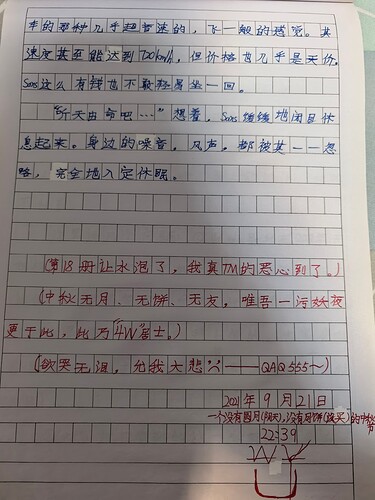 车的那种几乎超音速的，飞一般的感觉。其
速度甚至能达到700km/h，但价格也几乎是天价，
Sans这么有钱也不敢轻易坐一回。
“听天由命吧……”想着，Sans缓缓地闭目休
息起来。身边的噪音，风声，都被其一一忽
略，完全地入定休眠。
（第18册让水泡了，我真TM的恶心到了。）
（中秋无月、无饼、无友，唯吾一污妖夜
更于此，此乃“4W”居士。）
（欲哭无泪，允我大悲——QAQ555~）
2021年9月21日
一个没有圆月(阴天),没有月饼(没买)的中秋
22:39